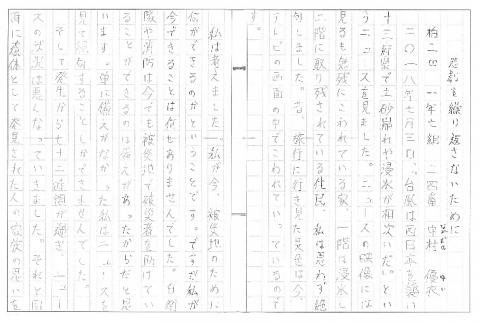 悲劇を繰り返さないために
一年七組 二四番 中村優衣
二〇一八年七月三日、台風は西日本を襲い
十三府県で土砂崩れや浸水が相次いだ。」とい
うニュースを見ました。ニュースの映像には
見るも無残にこわれている家、一階は浸水し
二階に取り残されている住民、私は思わず絶
句しました。昔、旅行に行き見た景色は今、
テレビの画面の中でこわれていっているので
す。
私は考えました。私が今、被災地のために
何ができるのかということです。ですが私が
今できることは何もありませんでした。自衛
隊や消防は今でも被災地で被災者を助けてい
ることができるのは備えがあったからだと思
います。単に備えがなかった私はニュースを
見て祈ることしかできませんでした。
そして発生から七十二時間が過ぎ、ニュー
スの状況は悪くなっていきました。それと同
時に遺体として発見された人の家族の思いを